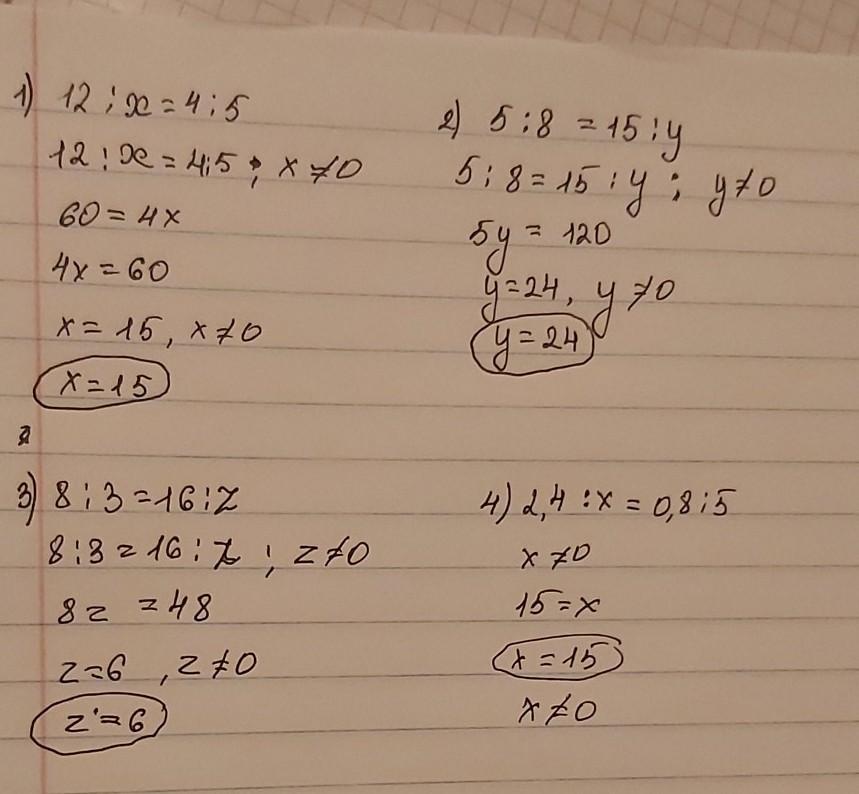 1) 12 : x = 4 : 5
12 : x = 4 : 5 ; x ≠ 0
60 = 4x
4x = 60
x = 15, x ≠ 0
x = 15
2) 5 : 8 = 15 : y
5 : 8 = 15 : y ; y ≠ 0
5y = 120
y = 24, y ≠ 0
y = 24
3) 8 : 3 = 16 : z
8 : 3 = 16 : z ; z ≠ 0
8z = 48
z = 6 , z ≠ 0
z = 6
4) 2,4 : x = 0,8 : 5
x ≠ 0
15 = x
x = 15
x ≠ 0